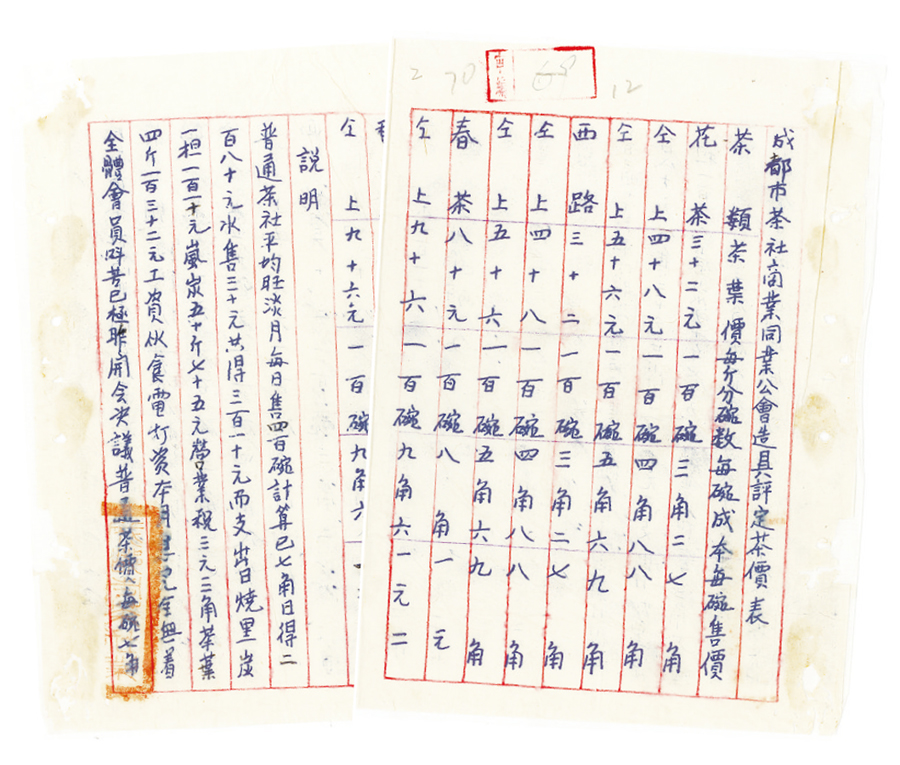 成都市茶社商業同業公會造具評定茶價表
茶類茶葉價每斤分碗數每碗成本每碗售價
花茶三十二元一百碗三角二七角
仝上四十八元一百碗四角八八角
仝上五十六元一百碗五角六九角
西路三十二一百碗三角二七角
仝上四十八一百碗四角八八角
仝上五十六一百碗五角六九角
春茶八十元一百碗八角一元
仝上九十六一百碗九角六一元二
仝上九十六元一百碗九角六
說明
普通茶社平均旺淡月每日售四百碗計算已七角日得二
百八十元水售三十元共得三百一十元而支出日燒黑炭
一担一百一十元嵐炭五十斤七十五元營業税三元三角茶葉
四斤一百三十二元工資伙食電灯资本月全無着
全體會員叫苦已極昨開会决議普通茶價每碗七角